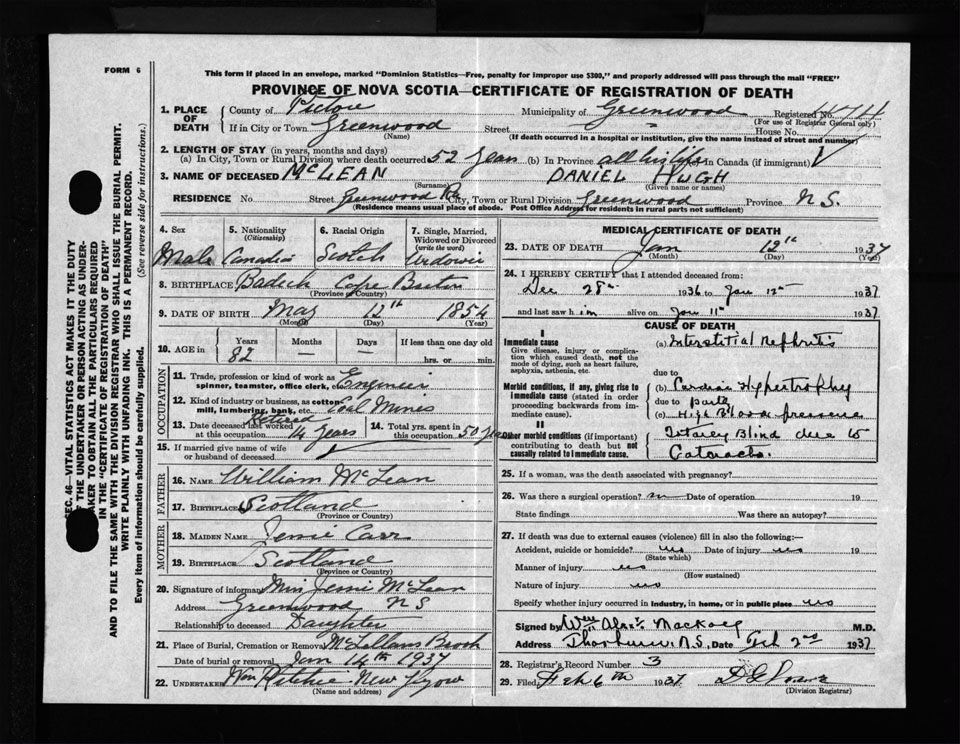 FORM 6
This form if placed in an envelope, marked "Dominion Statistics—Free, penalty for improper use $300," and properly addressed will pass through the mail "FREE"
PROVINCE OF NOVA SCOTIA—CERTIFICATE OF REGISTRATION OF DEATH
1. PLACE OF DEATH
County of Pictou Municipality of Greenwood Registered No.
(For use of Registrar General only)
If in City or Town Greenwood Street House No.
(Name) (If death occurred in a hospital or institution, give the name instead of street and number)
2. LENGTH OF STAY (in years, months and days)
(a) In City, Town or Rural Division where death occurred 52 years (b) In Province all his life (c) In Canada (if immigrant)
3. NAME OF DECEASED McLEAN DANIEL HUGH
(Surname) (Given name or names)
RESIDENCE No. Street Greenwood Rd City, Town or Rural Division Greenwood Province N.S.
(Residence means usual place of abode. Post Office Address for residents in rural parts not sufficient)
4. Sex 5. Nationality 6. Racial Origin 7. Single, Married, Widowed or Divorced
(Citizenship) (write the word)
Male Scotch
8. BIRTHPLACE Cape Breton
(Province or Country)
9. DATE OF BIRTH May 12th 1854
(Month) (Day) (Year)
10. AGE in Years Months Days If less than one day old
82 — — hrs. or min.
OCCUPATION
11. Trade, profession or kind of work as spinner, teamster, office clerk, etc.
12. Kind of industry or business, as cotton mill, lumbering, bank, etc. Coal Mines
13. Date deceased last worked at this occupation 14 years
14. Total yrs. spent in this occupation 50 years
15. If married give name of wife or husband of deceased
FATHER
16. NAME William McLean
17. BIRTHPLACE Scotland
(Province or Country)
MOTHER
18. MAIDEN NAME Jessie Carr
19. BIRTHPLACE Scotland
(Province or Country)
20. Signature of informant Miss Jessie McLean
Address Greenwood N S
Relationship to deceased Daughter
21. Place of Burial, Cremation or Removal McLellans Brook
Date of burial or removal Jan 14th 1937
22. UNDERTAKER New Glasgow
(Name and address)
MEDICAL CERTIFICATE OF DEATH
23. DATE OF DEATH Jan 12th 1937
(Month) (Day) (Year)
24. I HEREBY CERTIFY that I attended deceased from:
Dec 28th 1936 to Jan 12th 1937
and last saw him alive on Jan 11th 1937
CAUSE OF DEATH
I
Immediate cause
Give disease, injury or complication which caused death, not the mode of dying, such as heart failure, asphyxia, asthenia, etc.
(a) Interstitial Nephritis
due to
Morbid conditions, if any, giving rise to immediate cause (stated in order proceeding backwards from immediate cause).
(b) Cardiac Hypertrophy
due to partly
(c) High Blood pressure
II
Other morbid conditions (if important) contributing to death but not causally related to immediate cause.
Totaley Blind due to
Cataracts.
25. If a woman, was the death associated with pregnancy?
26. Was there a surgical operation? no Date of operation 19
State findings Was there an autopsy?
27. If death was due to external causes (violence) fill in also the following:—
Accident, suicide or homicide? no Date of injury no 19
(State which)
Manner of injury no
(How sustained)
Nature of injury no
Specify whether injury occurred in industry, in home, or in public place no
Signed by M.D.
Address Thorburn N.S, Date Feb 2nd 1937
28. Registrar's Record Number 3
29. Filed Feb 6th 1937
(Division Registrar)
SEC. 46—VITAL STATISTICS ACT MAKES IT THE DUTY
OF THE UNDERTAKER OR PERSON ACTING AS UNDERTAKER TO OBTAIN ALL THE PARTICULARS REQUIRED
IN THE "CERTIFICATE OF REGISTRATION OF DEATH"
AND TO FILE THE SAME WITH THE DIVISION REGISTRAR WHO SHALL ISSUE THE BURIAL PERMIT.
WRITE PLAINLY WITH UNFADING INK. THIS IS A PERMANENT RECORD.
Every item of information should be carefully supplied. (See reverse side for instructions.)